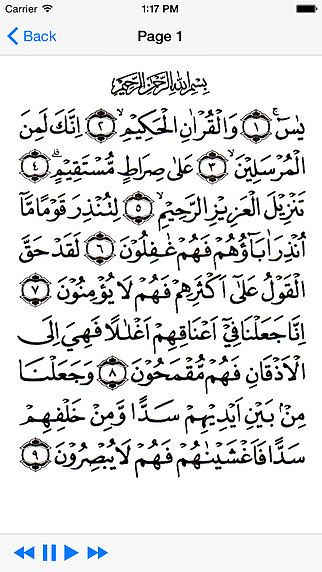 Carrier 1:17 PM
Back Page 1
بِسْمِ اللهِ الرَّحْمٰنِ الرَّحِيْمِ
يٰسٓ ۚ ﴿١﴾ وَالْقُرْاٰنِ الْحَكِيْمِ ۙ ﴿٢﴾ اِنَّكَ لَمِنَ
الْمُرْسَلِيْنَ ۙ ﴿٣﴾ عَلٰى صِرَاطٍ مُّسْتَقِيْمٍ ۗ ﴿٤﴾
تَنْزِيْلَ الْعَزِيْزِ الرَّحِيْمِ ۙ ﴿٥﴾ لِتُنْذِرَ قَوْمًا مَّآ
اُنْذِرَ اٰبَآؤُهُمْ فَهُمْ غٰفِلُوْنَ ﴿٦﴾ لَقَدْ حَقَّ
الْقَوْلُ عَلٰٓى اَكْثَرِهِمْ فَهُمْ لَا يُؤْمِنُوْنَ ﴿٧﴾
اِنَّا جَعَلْنَا فِيْٓ اَعْنَاقِهِمْ اَغْلٰلًا فَهِيَ اِلَى
الْاَذْقَانِ فَهُمْ مُّقْمَحُوْنَ ﴿٨﴾ وَجَعَلْنَا
مِنْۢ بَيْنِ اَيْدِيْهِمْ سَدًّا وَّمِنْ خَلْفِهِمْ
سَدًّا فَاَغْشَيْنٰهُمْ فَهُمْ لَا يُبْصِرُوْنَ ﴿٩﴾